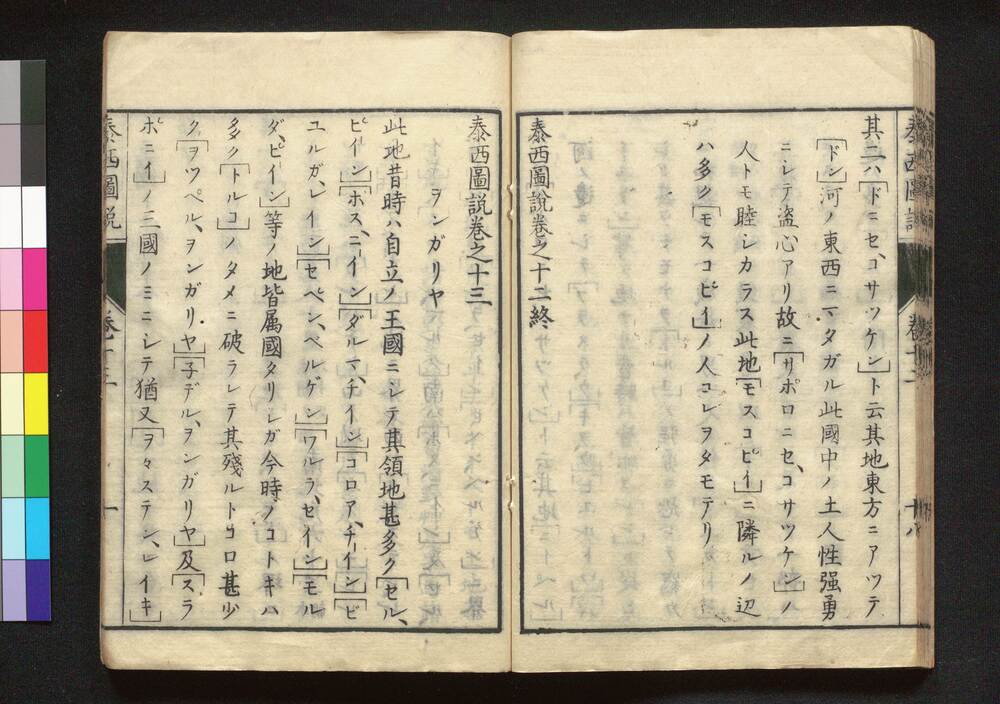 其二ハ「ドニセ、コサツケン」ト云其地東方ニアツテ
「ドン」河ノ東西ニマタガル此國中ノ土人性强勇
ニシテ盗心アリ故ニ「サポロニセ、コサツケン」ノ
人トモ睦シカラス此地「モスコビイ」ニ隣ルノ辺
ハ多ク「モスコビイ」ノ人コレヲタモテリ
泰西圖說卷之十二終
泰西圖説
卷十二
十八
泰西圖説卷之十三
ヲンガリヤ
此地昔時ハ自立ノ王國ニシテ其領地甚多ク「セル、
ピイン」「ホス、ニイン」「ダルマ、チイン」「コロア、チイン」「ビ
ユルガ、レイン」「セペン、ベルゲン」「ワルラ、セイン」「モル
ダ、ピイン」等ノ地皆属國タリシガ今時ノコトキハ
多ク「トルコ」ノタメニ破ラレテ其殘ルトコロ甚少
ク「ヲツペル、ヲンガリヤ」「子デル、ヲンガリヤ」及「スラ
ホニイ」ノ三國ノミニシテ猶又「ヲヽステン、レイキ」
泰西圖説
卷十三
一